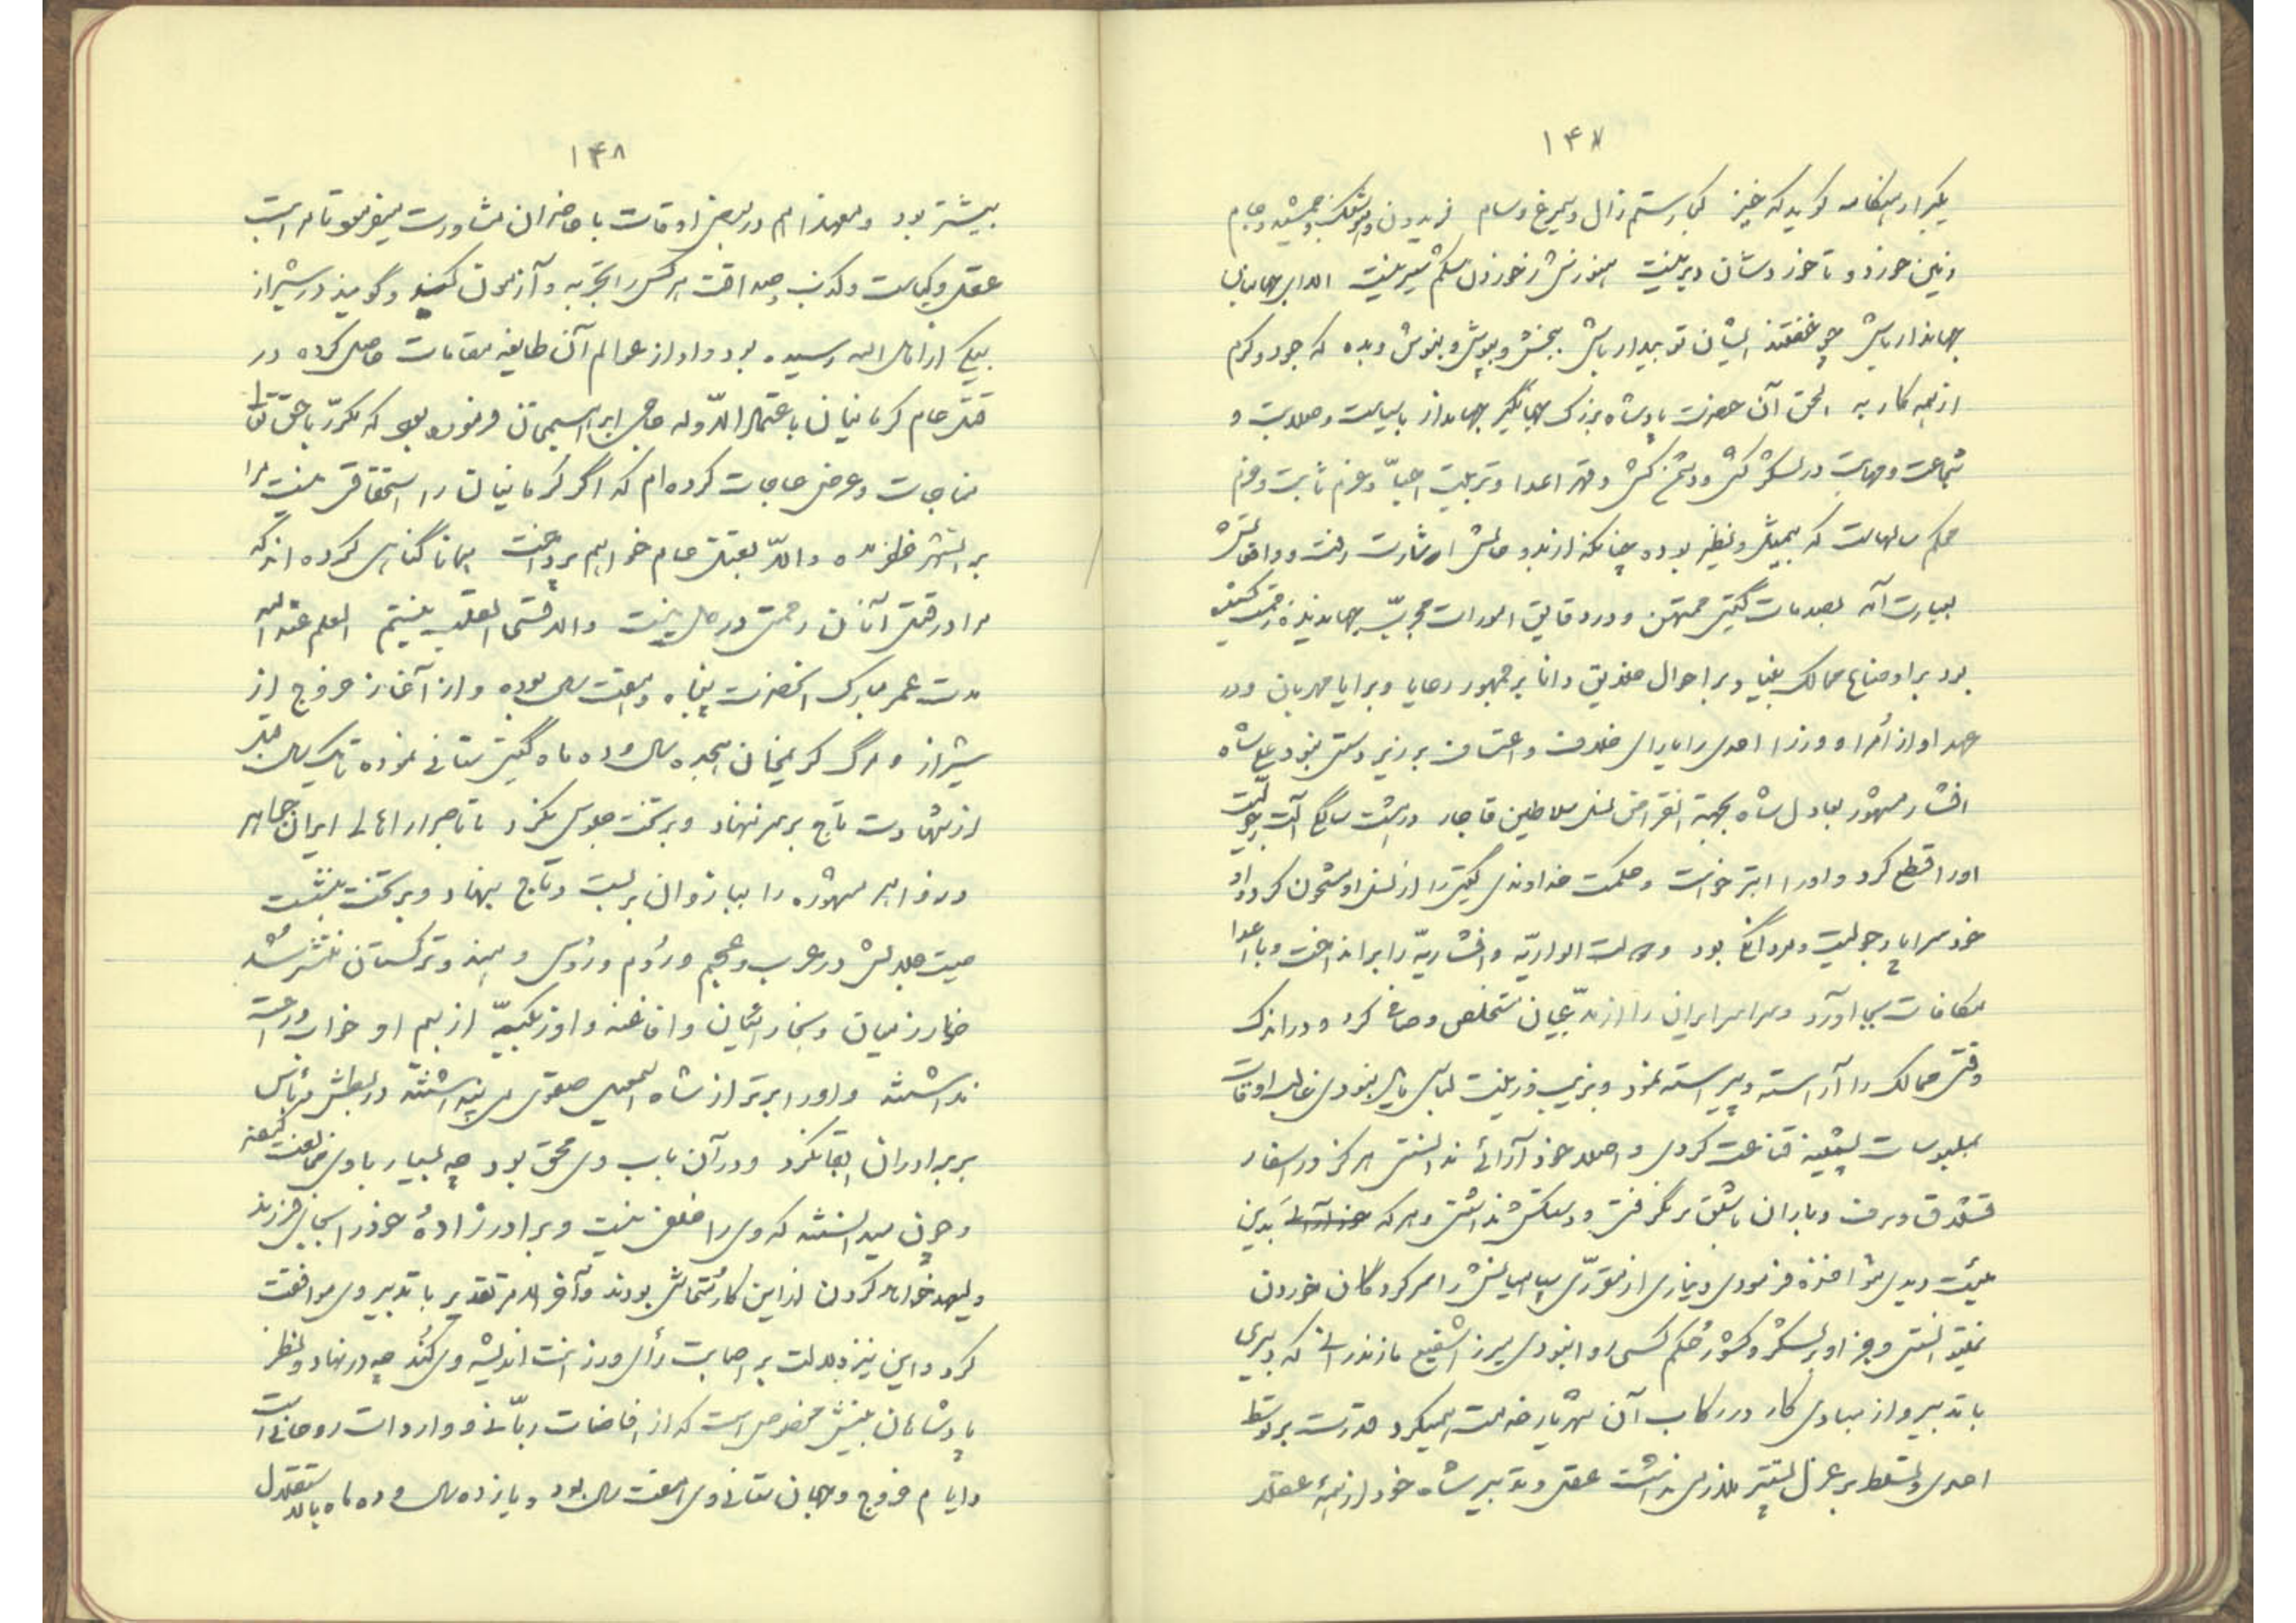 ۱۴۷
یکبار از هنگامه گوید که خیز کجا رستم زال و سیمرغ و سام فریدون و هوشنگ و جمشید و جام
زمین خورد و تا خورد شان دیر نیست هنوزش ز خوردن شکم سیر نیست الا ای جهانبان
جهاندار باش چو خفتند ایشان تو بیدار باش ببخش و بپوش و بنوش و بده که جود و کرم
از همه کار به الحق آن حضرت پادشاه بزرگ جهانگیر جهاندار با سیاست و صلابت و
شجاعت و مهابت در لشکر کشی و دشمن کشی و قهر اعدا و تربیت احبّا و عزم ثابت و حزم
محکم سالهاست که بیمثل و نظیر بوده چنانکه از بدو حالش اشارت رفت و واقعاتش
بعبارت آمد بصدمات گیتی ممتحن و در دقایق امورات مجرّب جهاندیده زحمت کشیده
بود بر اوضاع ممالک بینا و بر احوال خلایق دانا بر جمهور رعایا و برایا مهربان و در
عهد او از اُمرا و وزرا احدی را یارای خلاف و اعتساف بر زیر دستی نبود علی شاه
افشار مشهور بعادل شاه بجهة انقراض نسل سلاطین قاجار در هشت سالگی آلت رجولیت
او را قطع کرد و او را ابتر خواست و حکمت خداوندی گیتی را از نسل او مشحون کرد و او
خود سراپا رجولیت و مردانگی بود و دولت الواریّه و افشاریّه را برانداخت و با اعدا
مکافات بجا آورد و سراسر ایران را از مدّعیان مستخلص و صافی کرد و در اندک
وقتی ممالک را آراسته و پیراسته نمود و بزیب و زینت لباس مایل نبودی غالب اوقات
بملبوسات پشمینه قناعت کردی و اصلا خود آرائی ندانستی هرگز در اسفار
قشلاق و برف و باران باشلق بر نگرفتی و دستکش نداشتی و هر که بدین
هیئت دیدی مؤاخذه فرمودی دیناری از مقرّری سپاهیانش را امر کرد گان خوردن
نمیتوانستی و جز او بر لشکر و کشور حُکم کسی روا نبودی میرزا شفیع مازندرانی که دبیری
با تدبیر و از مبادی کار در رکاب آن شهریار خدمت همیکرد قدرت بر توسط
احدی و تسلط بر عزل بیشتر ملازمی نداشت عقل و تدبیر شاه خود از همهٔ عقلا
۱۴۸
بیشتر بود و معهذا هم در بعضی اوقات با حاضران مشاورت میفرمود تا مراتب
عقل و کیاست و کذب و صداقت هر کس را تجربه و آزمون کند و گویند در شیراز
بیکی از اهل الله رسیده بود و او از عوالم آن طایفه مقامات حاصل کرده در
قتل عام کرمانیان با اعتمادالدّوله حاجی ابراهیمخان فرموده بود که مکرّر با حق تعالی
مناجات و عرض حاجات کرده ام که اگر کرمانیان را استحقاق نیست مرا
بر ایشان ظفر مده والّا بقتل عام خواهم پرداخت همانا گناهی کرده اند که
مرا در قتل آنان رحمتی در دل نیست والا قسی القلب نیستم العلم عندالله
مدت عمر مبارک آنحضرت پنجاه و هفت سال بوده و از آغاز خروج از
شیراز و مرگ کریمخان هیجده سال و ده ماه گیتی ستانی نموده تا یک سال قبل
از شهادت تاج بر سر ننهاد و بر تخت جلوس نکرد تا باصرار اهالی ایران جواهر
و زواهر مشهوره را ببازوان بر بست و تاج بنهاد و بر تخت بنشست
صیت جلالش در عرب و عجم و رُوم و رُوس و هند و ترکستان منتشر شد
خوارزمیان و بخارائیان و افاغنه و اوزبکیّه از بیم او خواب و راحت
نداشتند و او را برتر از شاه اسمعیل صفوی می پنداشتند در بطش و بأس
بر برادران ابقا نکرد و در آن باب وی محق بود چه بسیار با وی مخالفت کردند
و چون میدانستند که وی را خلفی نیست و برادر زادهٔ خود را بجای فرزند
ولیعهد خواهد کردن از این کار متحاشی بودند و آخر الامر تقدیر با تدبیر وی موافقت
کرد و این نیز دلالت بر اصابت رأی و رزانت اندیشه وی کُند چه در نهاد و نظر
پادشاهان بینشی مخصوص است که از افاضات ربّانی و واردات روحانی است
و ایام خروج و جهان ستانی وی هفت سال بود و یازده سال و ده ماه بالاستقلال